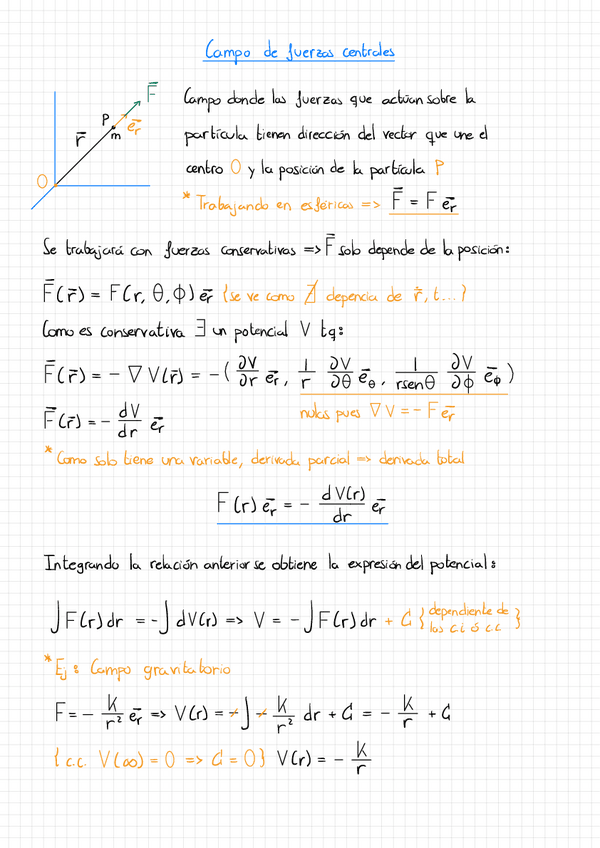 Campo de fuerzas centrales
F⃗
P
e⃗r
m
r⃗
O
Campo donde las fuerzas que actúan sobre la
partícula tienen dirección del vector que une el
centro O y la posición de la partícula P
* Trabajando en esféricas => F⃗ = F e⃗r
Se trabajará con fuerzas conservativas => F⃗ solo depende de la posición:
F⃗(r⃗) = F(r, θ, ϕ) e⃗r {se ve como ∄ depencia de ṙ, t...}
Como es conservativa ∃ un potencial V tq:
F⃗(r⃗) = - ∇V(r⃗) = - ( ∂V/∂r e⃗r, 1/r ∂V/∂θ e⃗θ, 1/rsenθ ∂V/∂ϕ e⃗ϕ )
nulas pues ∇V = - F e⃗r
F⃗(r⃗) = - dV/dr e⃗r
* Como solo tiene una variable, derivada parcial => derivada total
F(r) e⃗r = - dV(r)/dr e⃗r
Integrando la relación anterior se obtiene la expresión del potencial:
∫F(r)dr = -∫dV(r) => V = -∫F(r)dr + C {dependiente de los c.i ó c.c.}
* Ej: Campo gravitatorio
F = - K/r² e⃗r => V(r) = -∫ - K/r² dr + C = - K/r + C
{c.c. V(∞) = 0 => C = 0} V(r) = - K/r